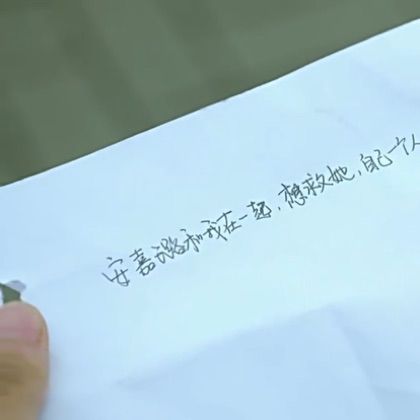 安嘉璐和我在一起，想救她，自己一个人